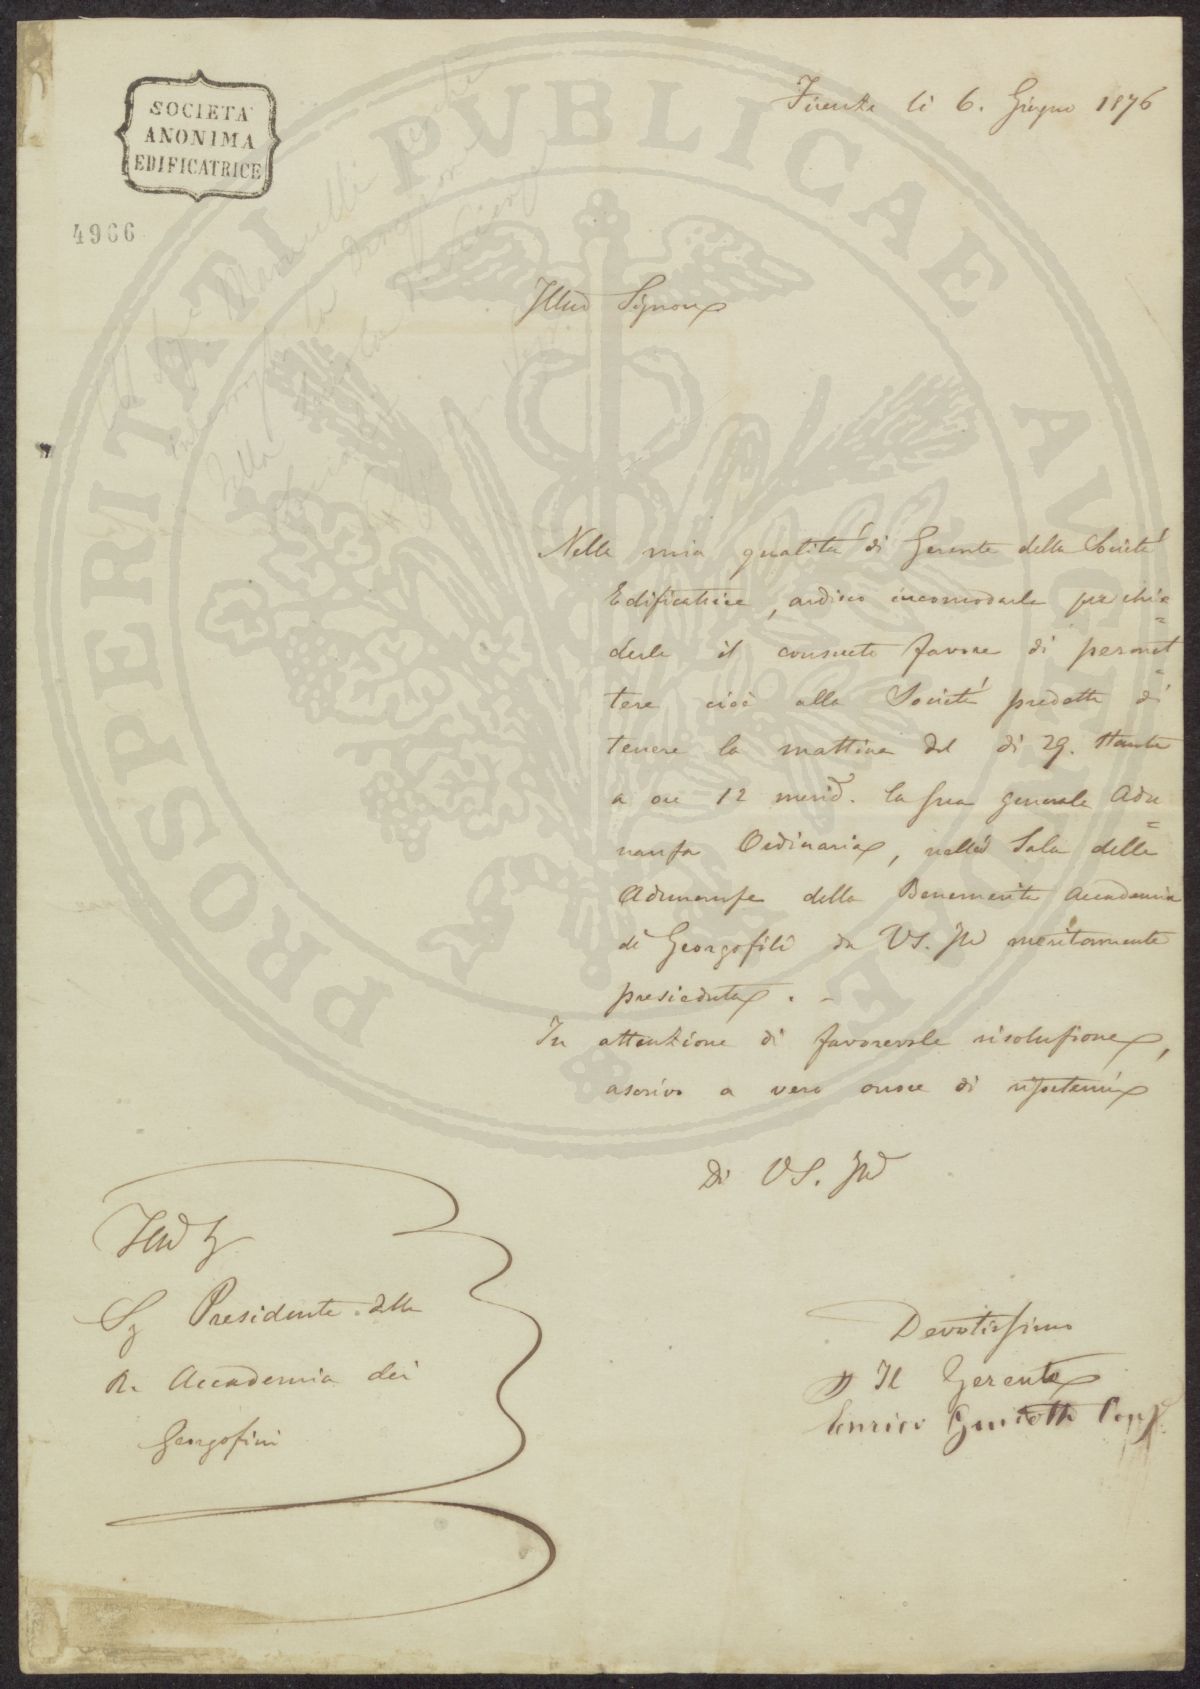 SOCIETA'
ANONIMA
EDIFICATRICE
4966
Firenze li 6. Giugno 1876
PROSPERITATI PVBLICAE AVGENDAE
Illmo Signore
Nella mia qualità di Gerente della Società
Edificatrice, ardisco incomodarla per chie=
derle il consueto favore di permet=
tere cioè alla Società predetta di
tenere la mattina del dì 29. stante
a ore 12 merid. la sua generale Adu=
nanza Ordinaria, nella Sala delle
Adunanze della Benemerita Accademia
di Georgofili da VS. Illma meritamente
presieduta. -
In attenzione di favorevole risoluzione,
ascrivo a vero onore di ripetermi
Di VS. Illma
Illmo
Sig Presidente della
R. Accademia dei
Georgofini
Devotissimo
Il Gerente
Enrico